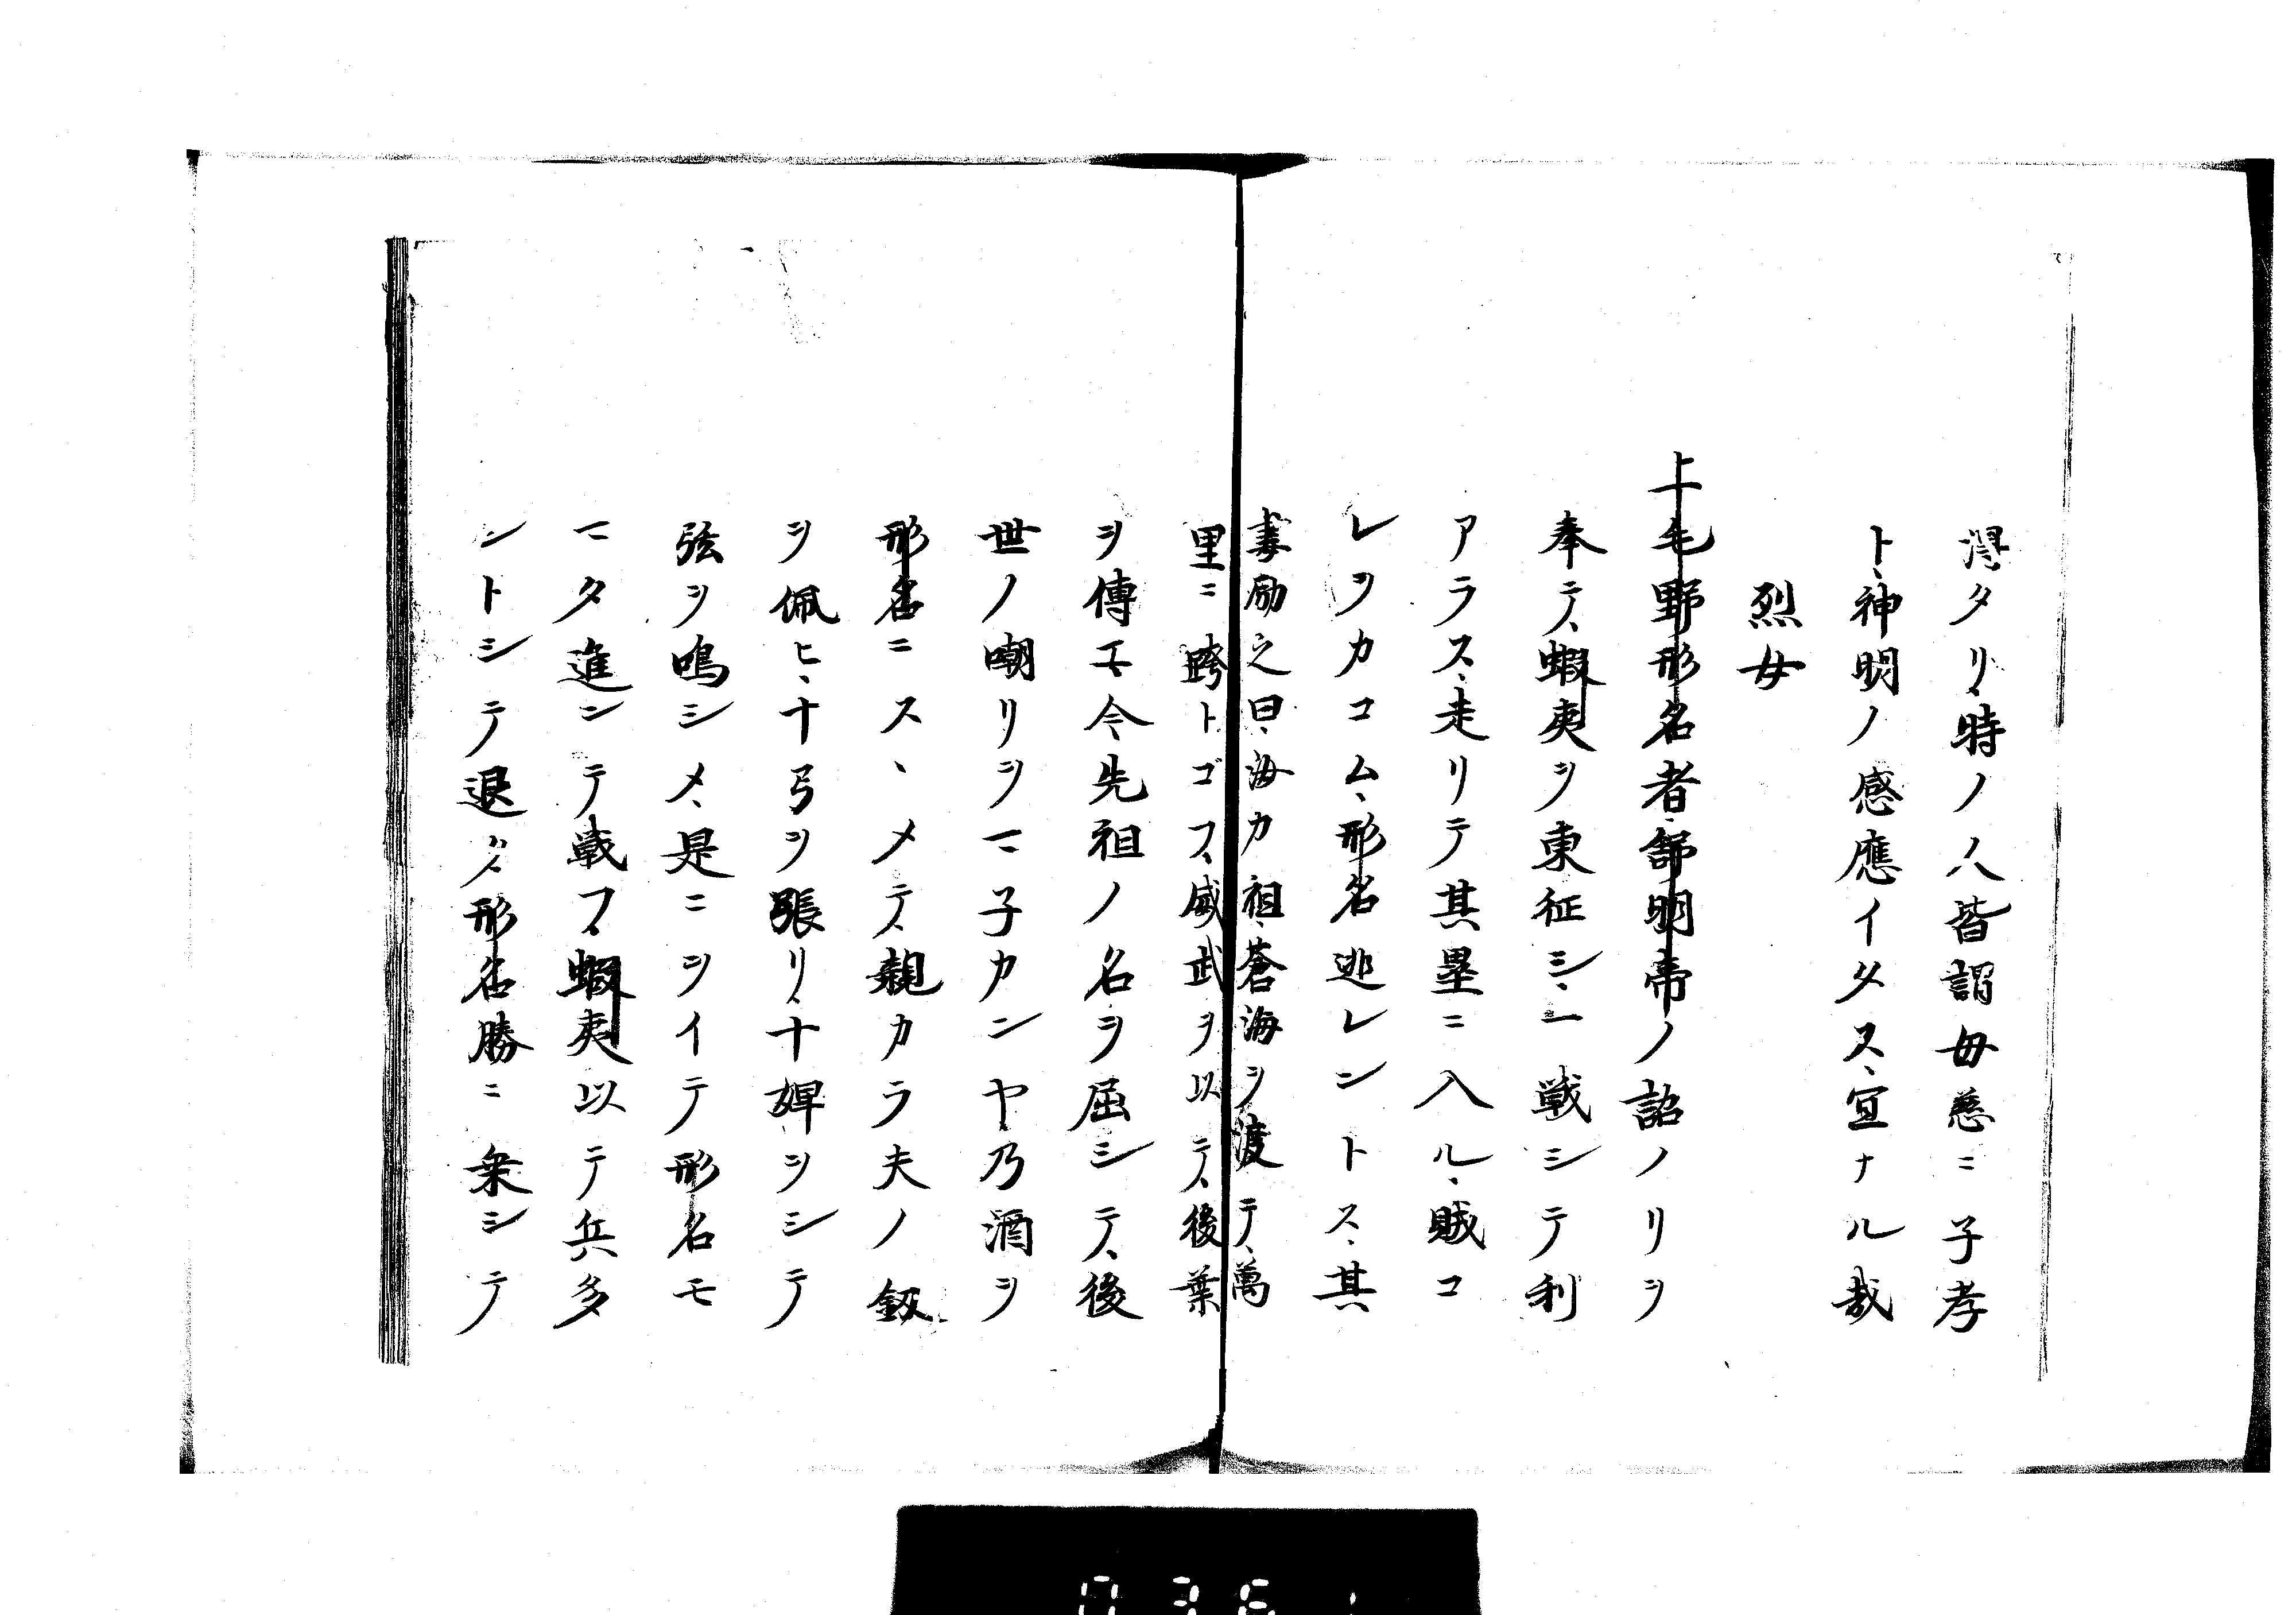 得タリ、時ノ人皆謂母慈ニ子孝
ト、神明ノ感應イタス、宜ナル哉
烈女
上毛野形名者、舒明帝ノ詔ノリヲ
奉テ、蝦夷ヲ東征シ、一戦シテ利
アラス、走リテ其塁ニ入ル、賊コ
レヲカコム、形名逃レントス、其
妻励之曰、海カ祖、蒼海ヲ渡テ、萬
里ニ跨トゴフ、威武ヲ以テ、後葉
ヲ傳エ、今先祖ノ名ヲ屈シテ、後
世ノ嘲リヲマ子カンヤ、乃酒ヲ
形名ニスヽメテ、親カラ夫ノ釼
ヲ佩ヒ、十弓ヲ張リ、十婢ヲシテ
弦ヲ鳴シメ、是ニヲイテ形名モ
マタ進ンテ戦フ、蝦夷以テ兵多
シトシテ退ク、形名勝ニ乗シテ